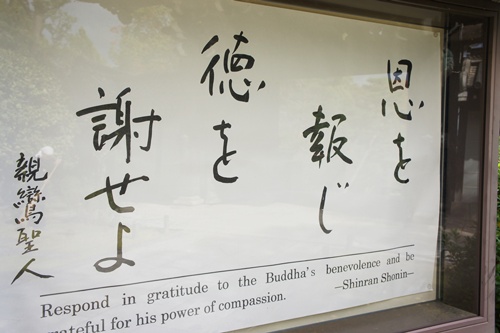 恩を
報じ
徳を
謝せよ
親鸞聖人
Respond in gratitude to the Buddha's benevolence and be
grateful for his power of compassion. —Shinran Shonin—